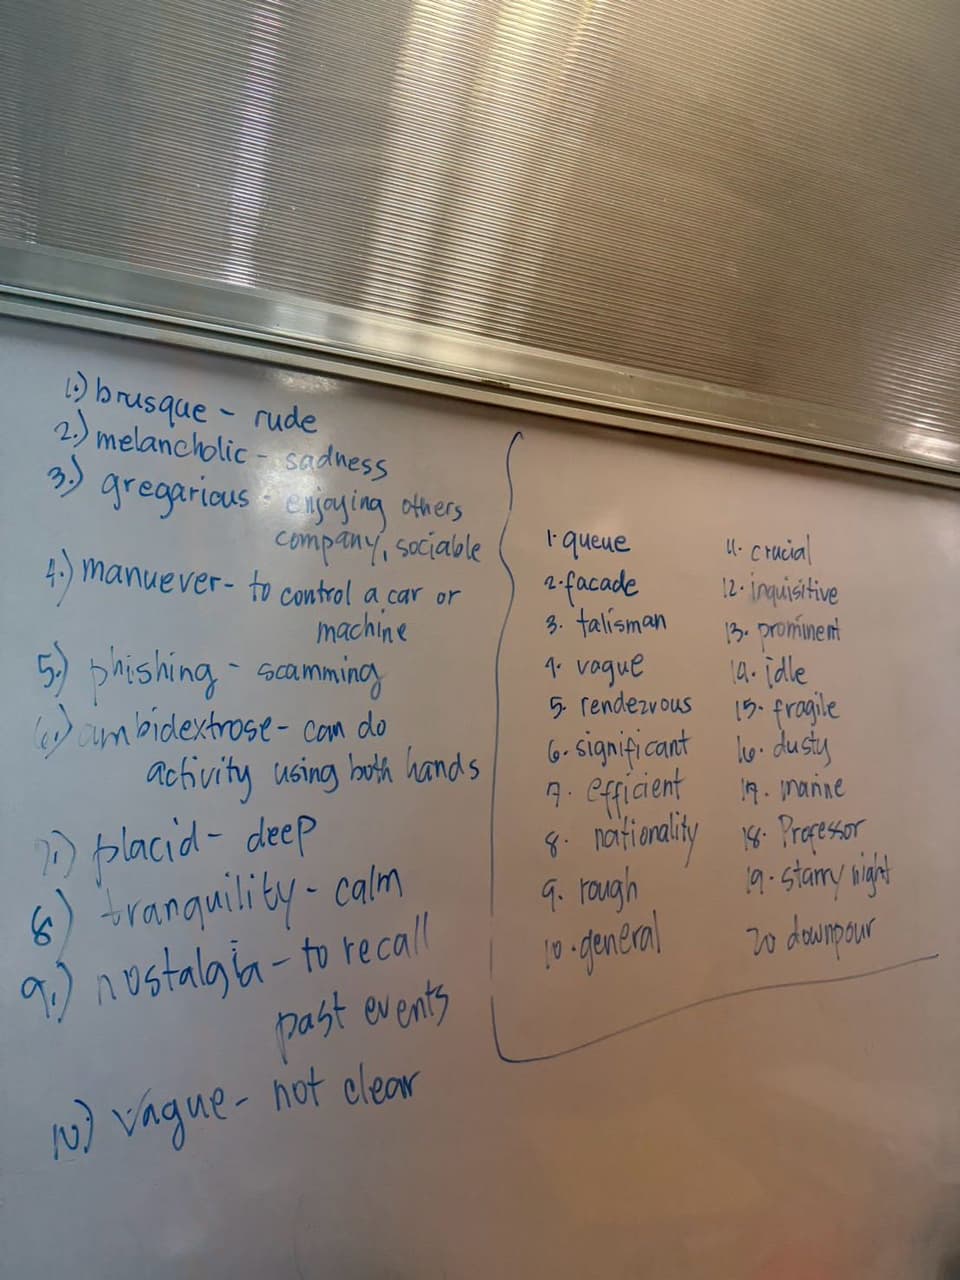 1.) brusque - rude
2.) melancholic - sadness
3.) gregarious - enjoying others
company, sociable
4.) manuever - to control a car or
machine
5.) phishing - scamming
6.) ambidextrose - can do
activity using both hands
7.) placid - deep
8) tranquility - calm
9.) nostalgia - to recall
past events
10.) vague - not clear
1. queue
2. facade
3. talisman
4. vague
5. rendezvous
6. significant
7. efficient
8. nationality
9. rough
10. general
11. crucial
12. inquisitive
13. prominent
14. idle
15. fragile
16. dusty
17. marine
18. Professor
19. starry night
20 downpour